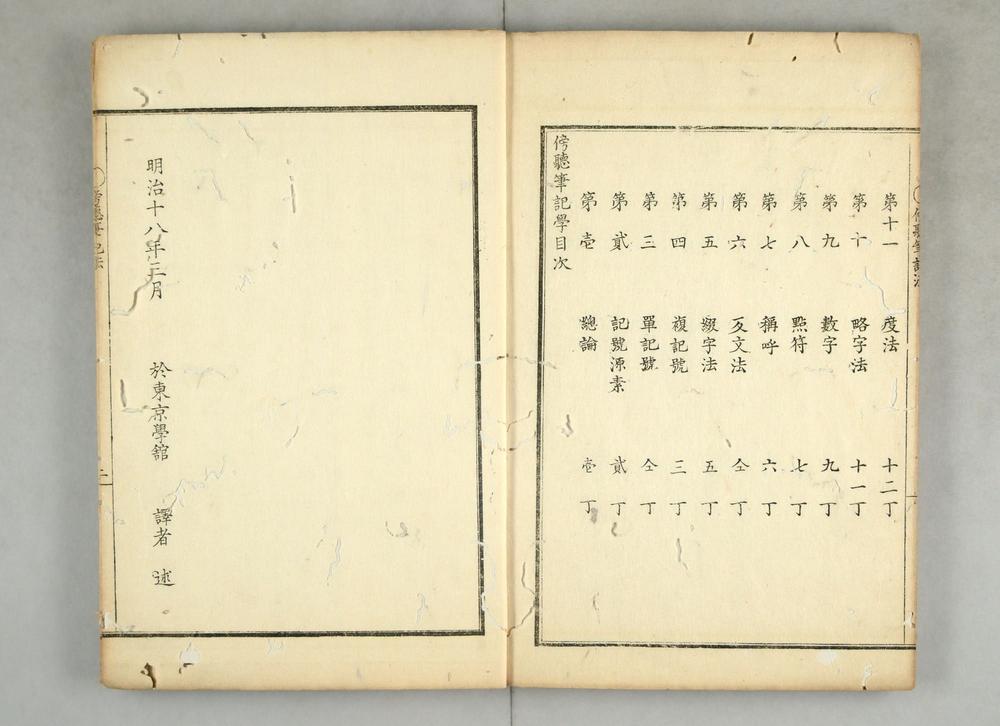 明治十八年三月 於東京學館 譯者 述
傍聽筆記學目次
第壹 總論 壹丁
第貳 記號源素 貳丁
第三 單記號 仝丁
第四 複記號 三丁
第五 綴字法 五丁
第六 文法 仝丁
第七 稱呼 六丁
第八 點符 七丁
第九 數字 九丁
第十 略字法 十一丁
第十一 度法 十二丁